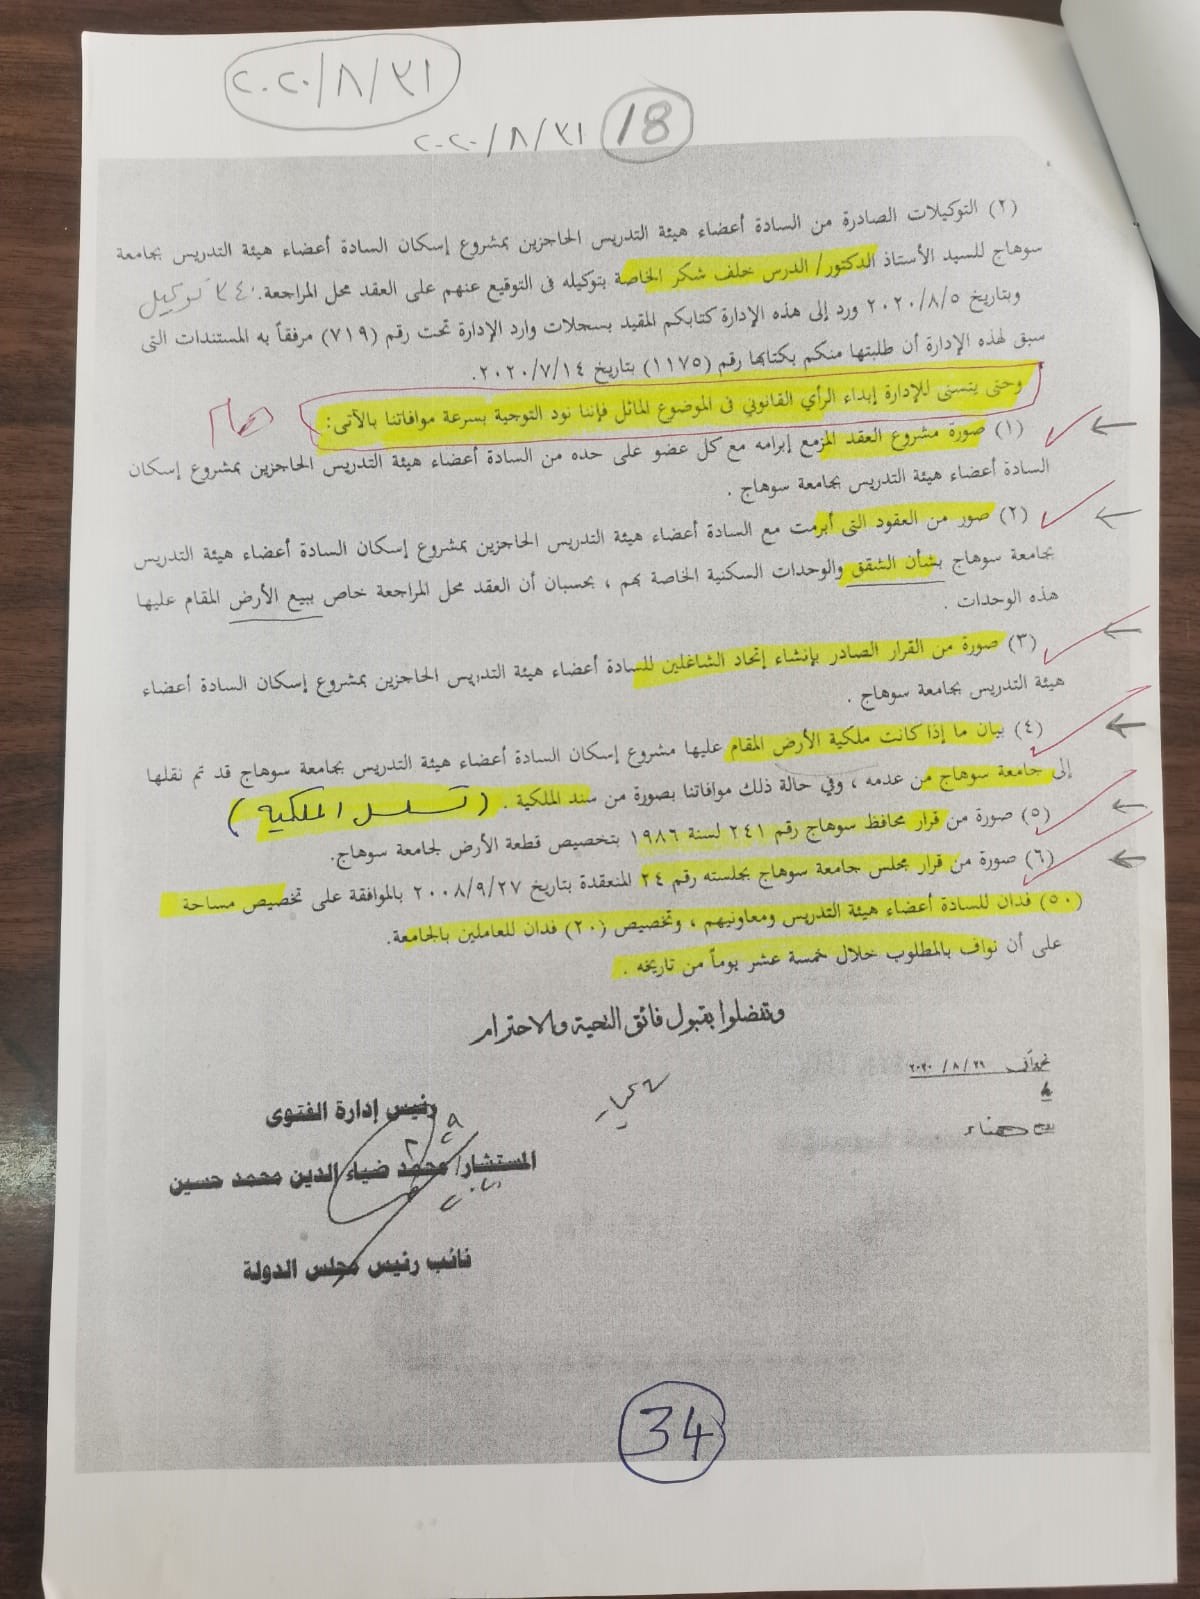 ٢٠٢٠/٨/٣١
٢٠٢٠/٨/٣١ 18
(٢) التوكيلات الصادرة من السادة أعضاء هيئة التدريس الحاجزين بمشروع إسكان السادة أعضاء هيئة التدريس بجامعة
سوهاج للسيد الأستاذ الدكتور/ الدرس خلف شكر الخاصة بتوكيله فى التوقيع عنهم على العقد محل المراجعة. توكيل
وبتاريخ ٢٠٢٠/٨/٥ ورد إلى هذه الإدارة كتابكم المقيد بسجلات وارد الإدارة تحت رقم (٧١٩) مرفقاً به المستندات التى
سبق لهذه الإدارة أن طلبتها منكم بكتابها رقم (١١٧٥) بتاريخ ٢٠٢٠/٧/١٤.
وحتى يتسنى للإدارة إبداء الرأي القانوني فى الموضوع الماثل فإننا نود التوجية بسرعة موافاتنا بالآتى:
هام
(١) صورة مشروع العقد المزمع إبرامه مع كل عضو على حده من السادة أعضاء هيئة التدريس الحاجزين بمشروع إسكان
السادة أعضاء هيئة التدريس بجامعة سوهاج .
(٢) صور من العقود التى أبرمت مع السادة أعضاء هيئة التدريس الحاجزين بمشروع إسكان السادة أعضاء هيئة التدريس
بجامعة سوهاج بشأن الشقق والوحدات السكنية الخاصة بهم ، بحسبان أن العقد محل المراجعة خاص ببيع الأرض المقام عليها
هذه الوحدات .
(٣) صورة من القرار الصادر بإنشاء إتحاد الشاغلين للسادة أعضاء هيئة التدريس الحاجزين بمشروع إسكان السادة أعضاء
هيئة التدريس بجامعة سوهاج .
(٤) بيان ما إذا كانت ملكية الأرض المقام عليها مشروع إسكان السادة أعضاء هيئة التدريس بجامعة سوهاج قد تم نقلها
إلى جامعة سوهاج من عدمه ، وفي حالة ذلك موافاتنا بصورة من سند الملكية . (تسلسل الملكية)
(٥) صورة من قرار محافظ سوهاج رقم ٢٤١ لسنة ١٩٨٦ بتخصيص قطعة الأرض لجامعة سوهاج.
(٦) صورة من قرار مجلس جامعة سوهاج بجلسته رقم ٢٤ المنعقدة بتاريخ ٢٠٠٨/٩/٢٧ بالموافقة على تخصيص مساحة
(٥٠) فدان للسادة أعضاء هيئة التدريس ومعاونيهم ، وتخصيص (٢٠) فدان للعاملين بالجامعة.
على أن نواف بالمطلوب خلال خمسة عشر يوماً من تاريخه .
وتفضلوا بقبول فائق التحية والاحترام
تحريراً فى ٢٠٢٠/٨/٢٩
رئيس إدارة الفتوى
المستشار/ محمد ضياء الدين محمد حسين
نائب رئيس مجلس الدولة
34